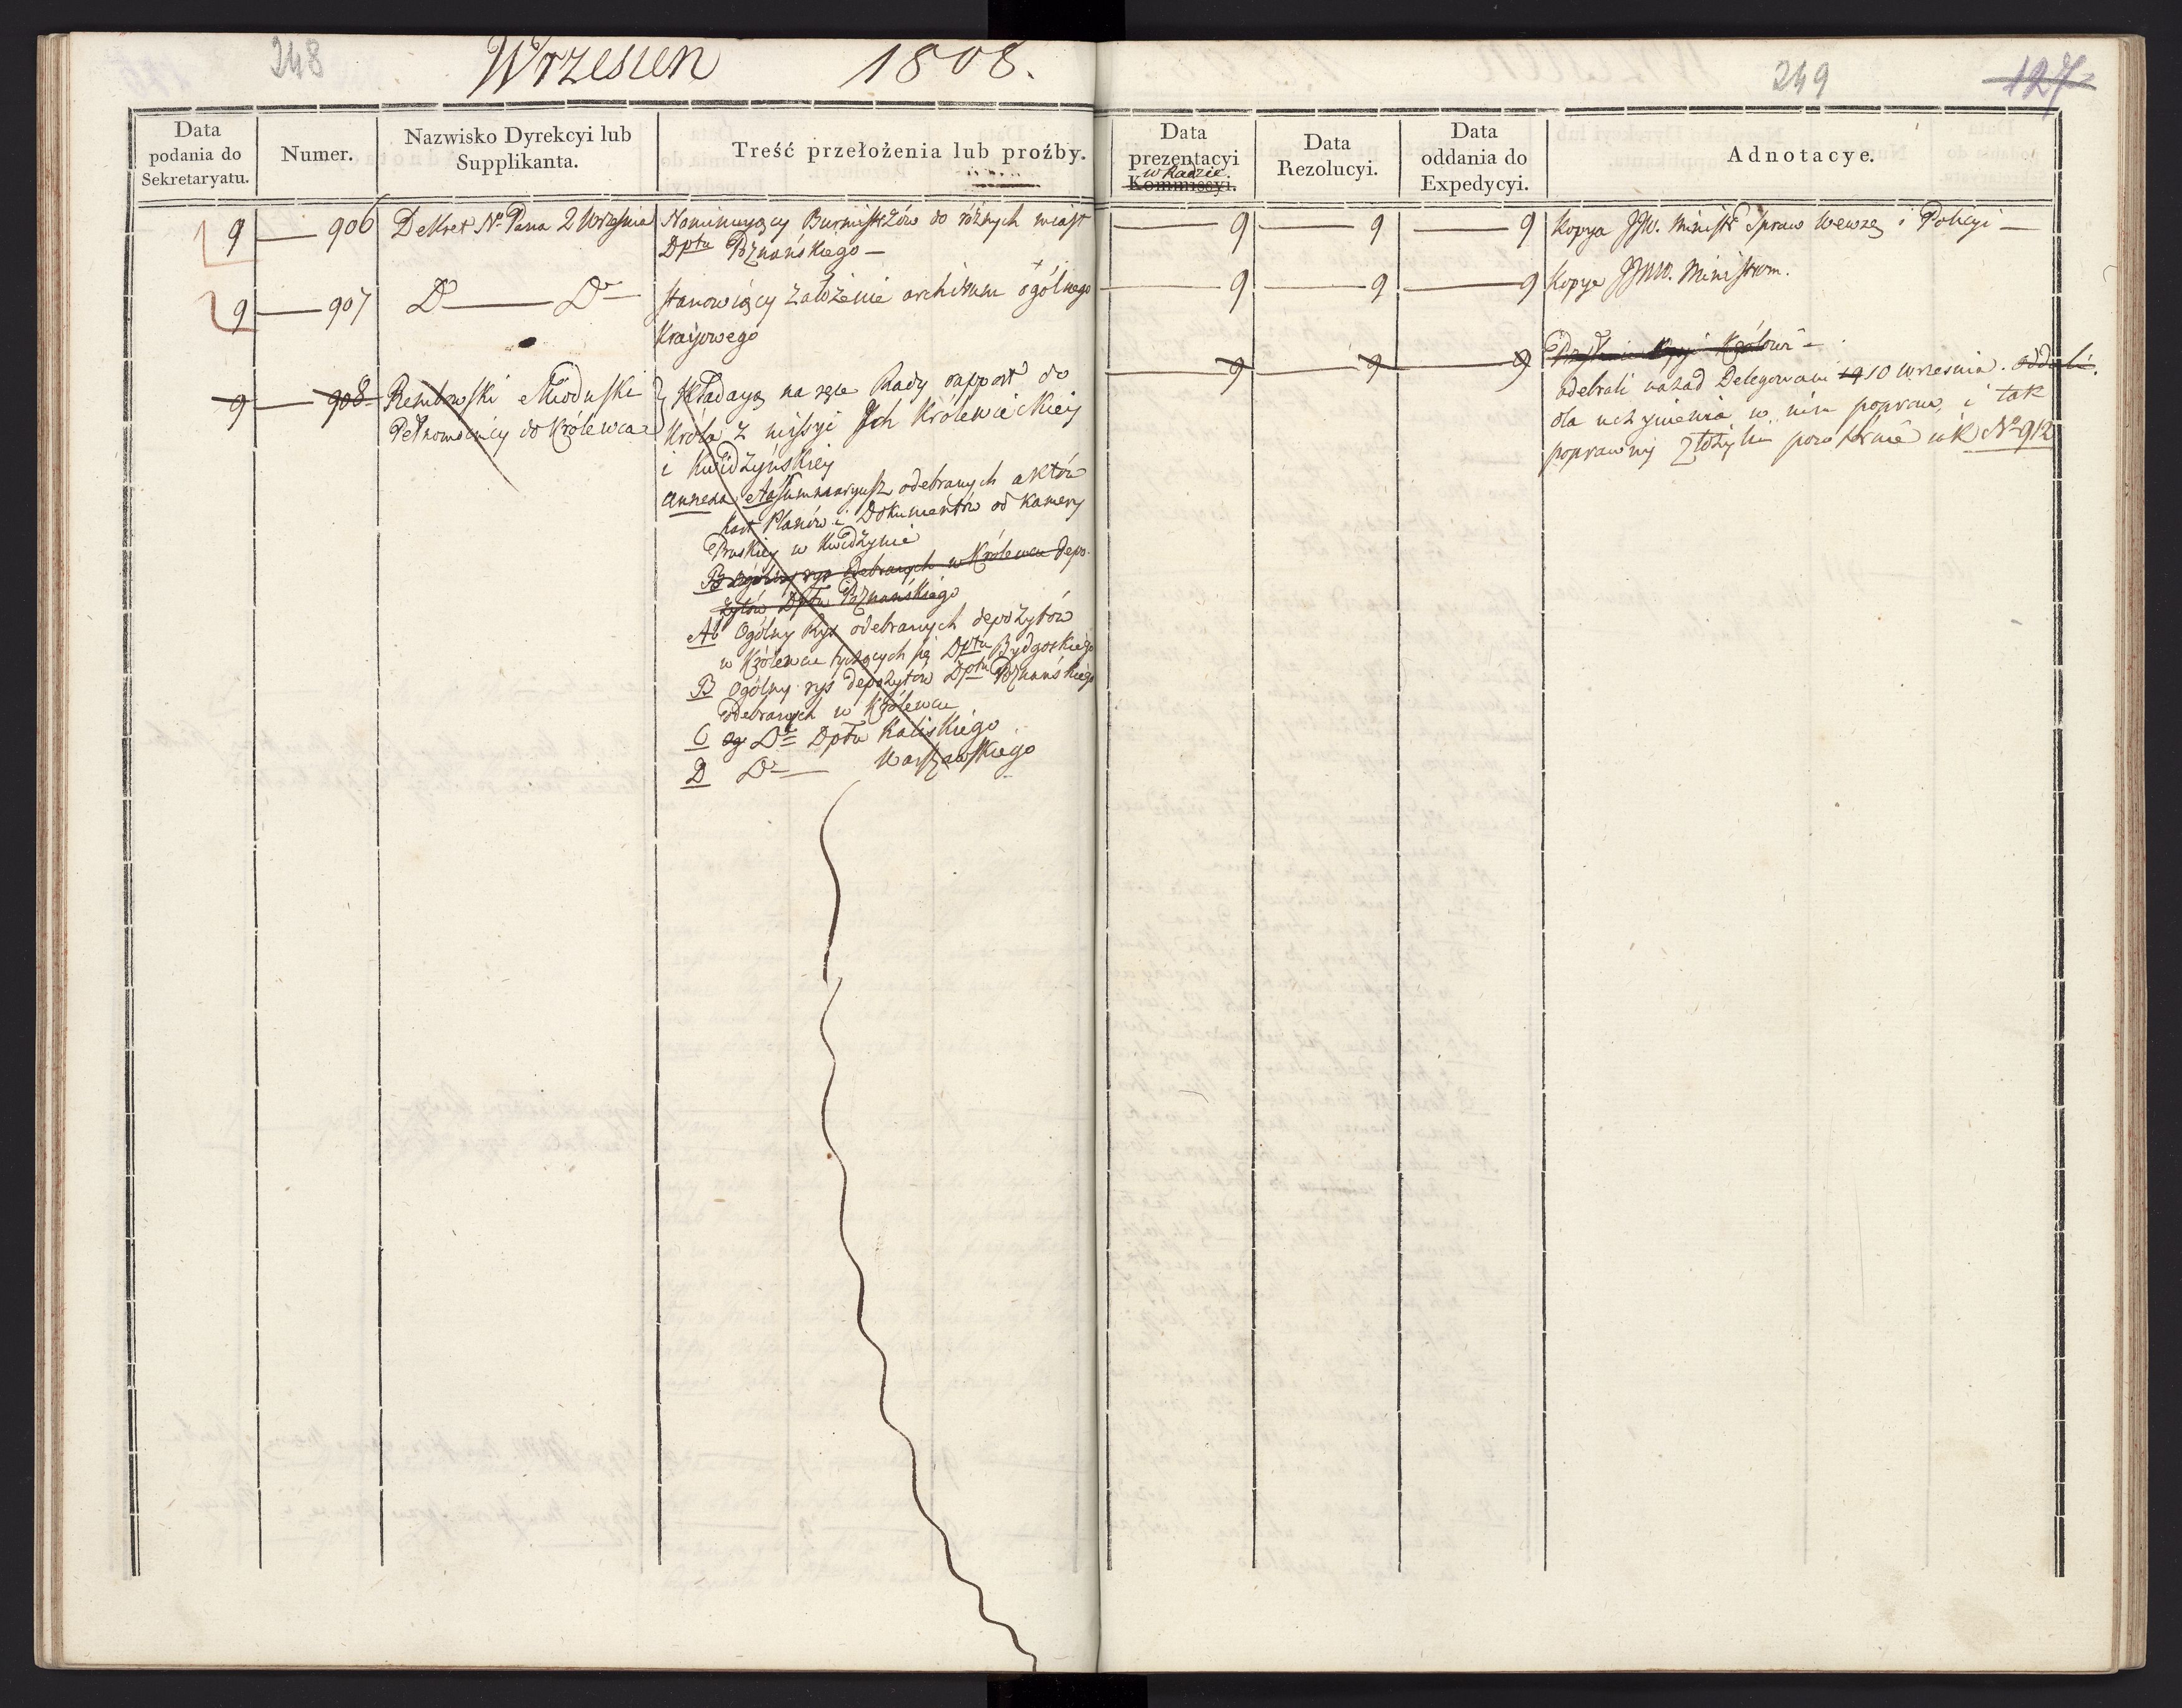 248
Wrzesien 1808.
249
127
Data podania do Sekretaryatu.
Numer.
Nazwisko Dyrekcyi lub Supplikanta.
Treść przełożenia lub prożby.
Data prezentacyi Kommissyi.
w Radzie.
Data Rezolucyi.
Data oddania do Expedycyi.
Adnotacye.
9 — 906 Dekret N. Pana 2 Września
Nominuiący Burmistrzów do różnych miast
Dptu Poznańskiego —
— 9 — 9 — 9
Kopya JW. Ministr Spraw Wewnę i Policyi —
9 — 907 Do — Do —
stanowiący założenie archivum ogólnego
Kraiowego
— 9 — 9 — 9
Kopye JJWW. Ministrom.
9 — 908 Rembowski Mioduski
Pełnomocnicy do Królewca
składaią na ręce Rady rapport do
Króla z missyi Ich Królewieckiey
i Kwidzyńskiey
annexa: A Summaryusz odebranych aktów
Kart Planów i Dokumentów od Kamery
Pruskiey w Kwidzynie
B ogólny rys odebranych w Królewcu depo-
zytów Dptu Poznańskiego
Ab Ogólny Rys odebranych depozytów
w Królewcu tyczących się Dptu Bydgoskiego
B Ogólny rys depozytów Dptu Poznańskiego
odebranych w Królewcu
C Og Do Dptu Kaliskiego
D Do — Warszawskiego
— 9 — 9 — 9
odebrali nazad Delegowani 10 września. oddali.
dla uczynienia w nim popraw, i tak
poprawny złożyli powtórnie vide No 912